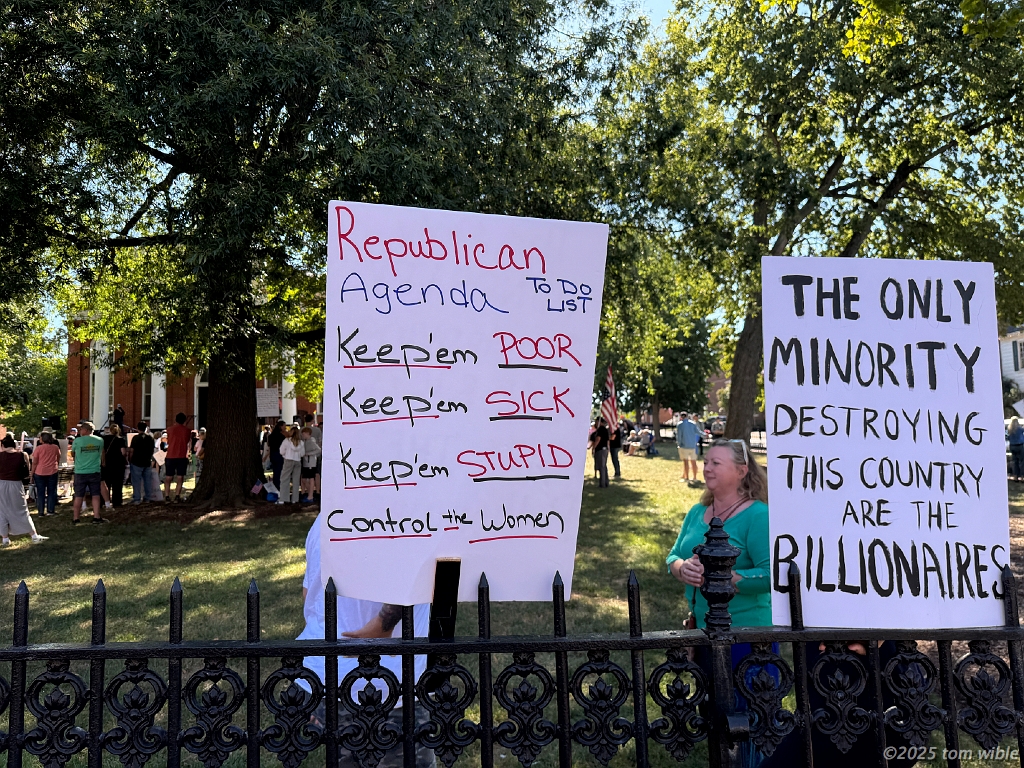 Republican
Agenda TO DO LIST
Keep'em POOR
Keep'em SICK
Keep'em STUPID
Control the Women
THE ONLY
MINORITY
DESTROYING
THIS COUNTRY
ARE THE
BILLIONAIRES
©2025 tom wible